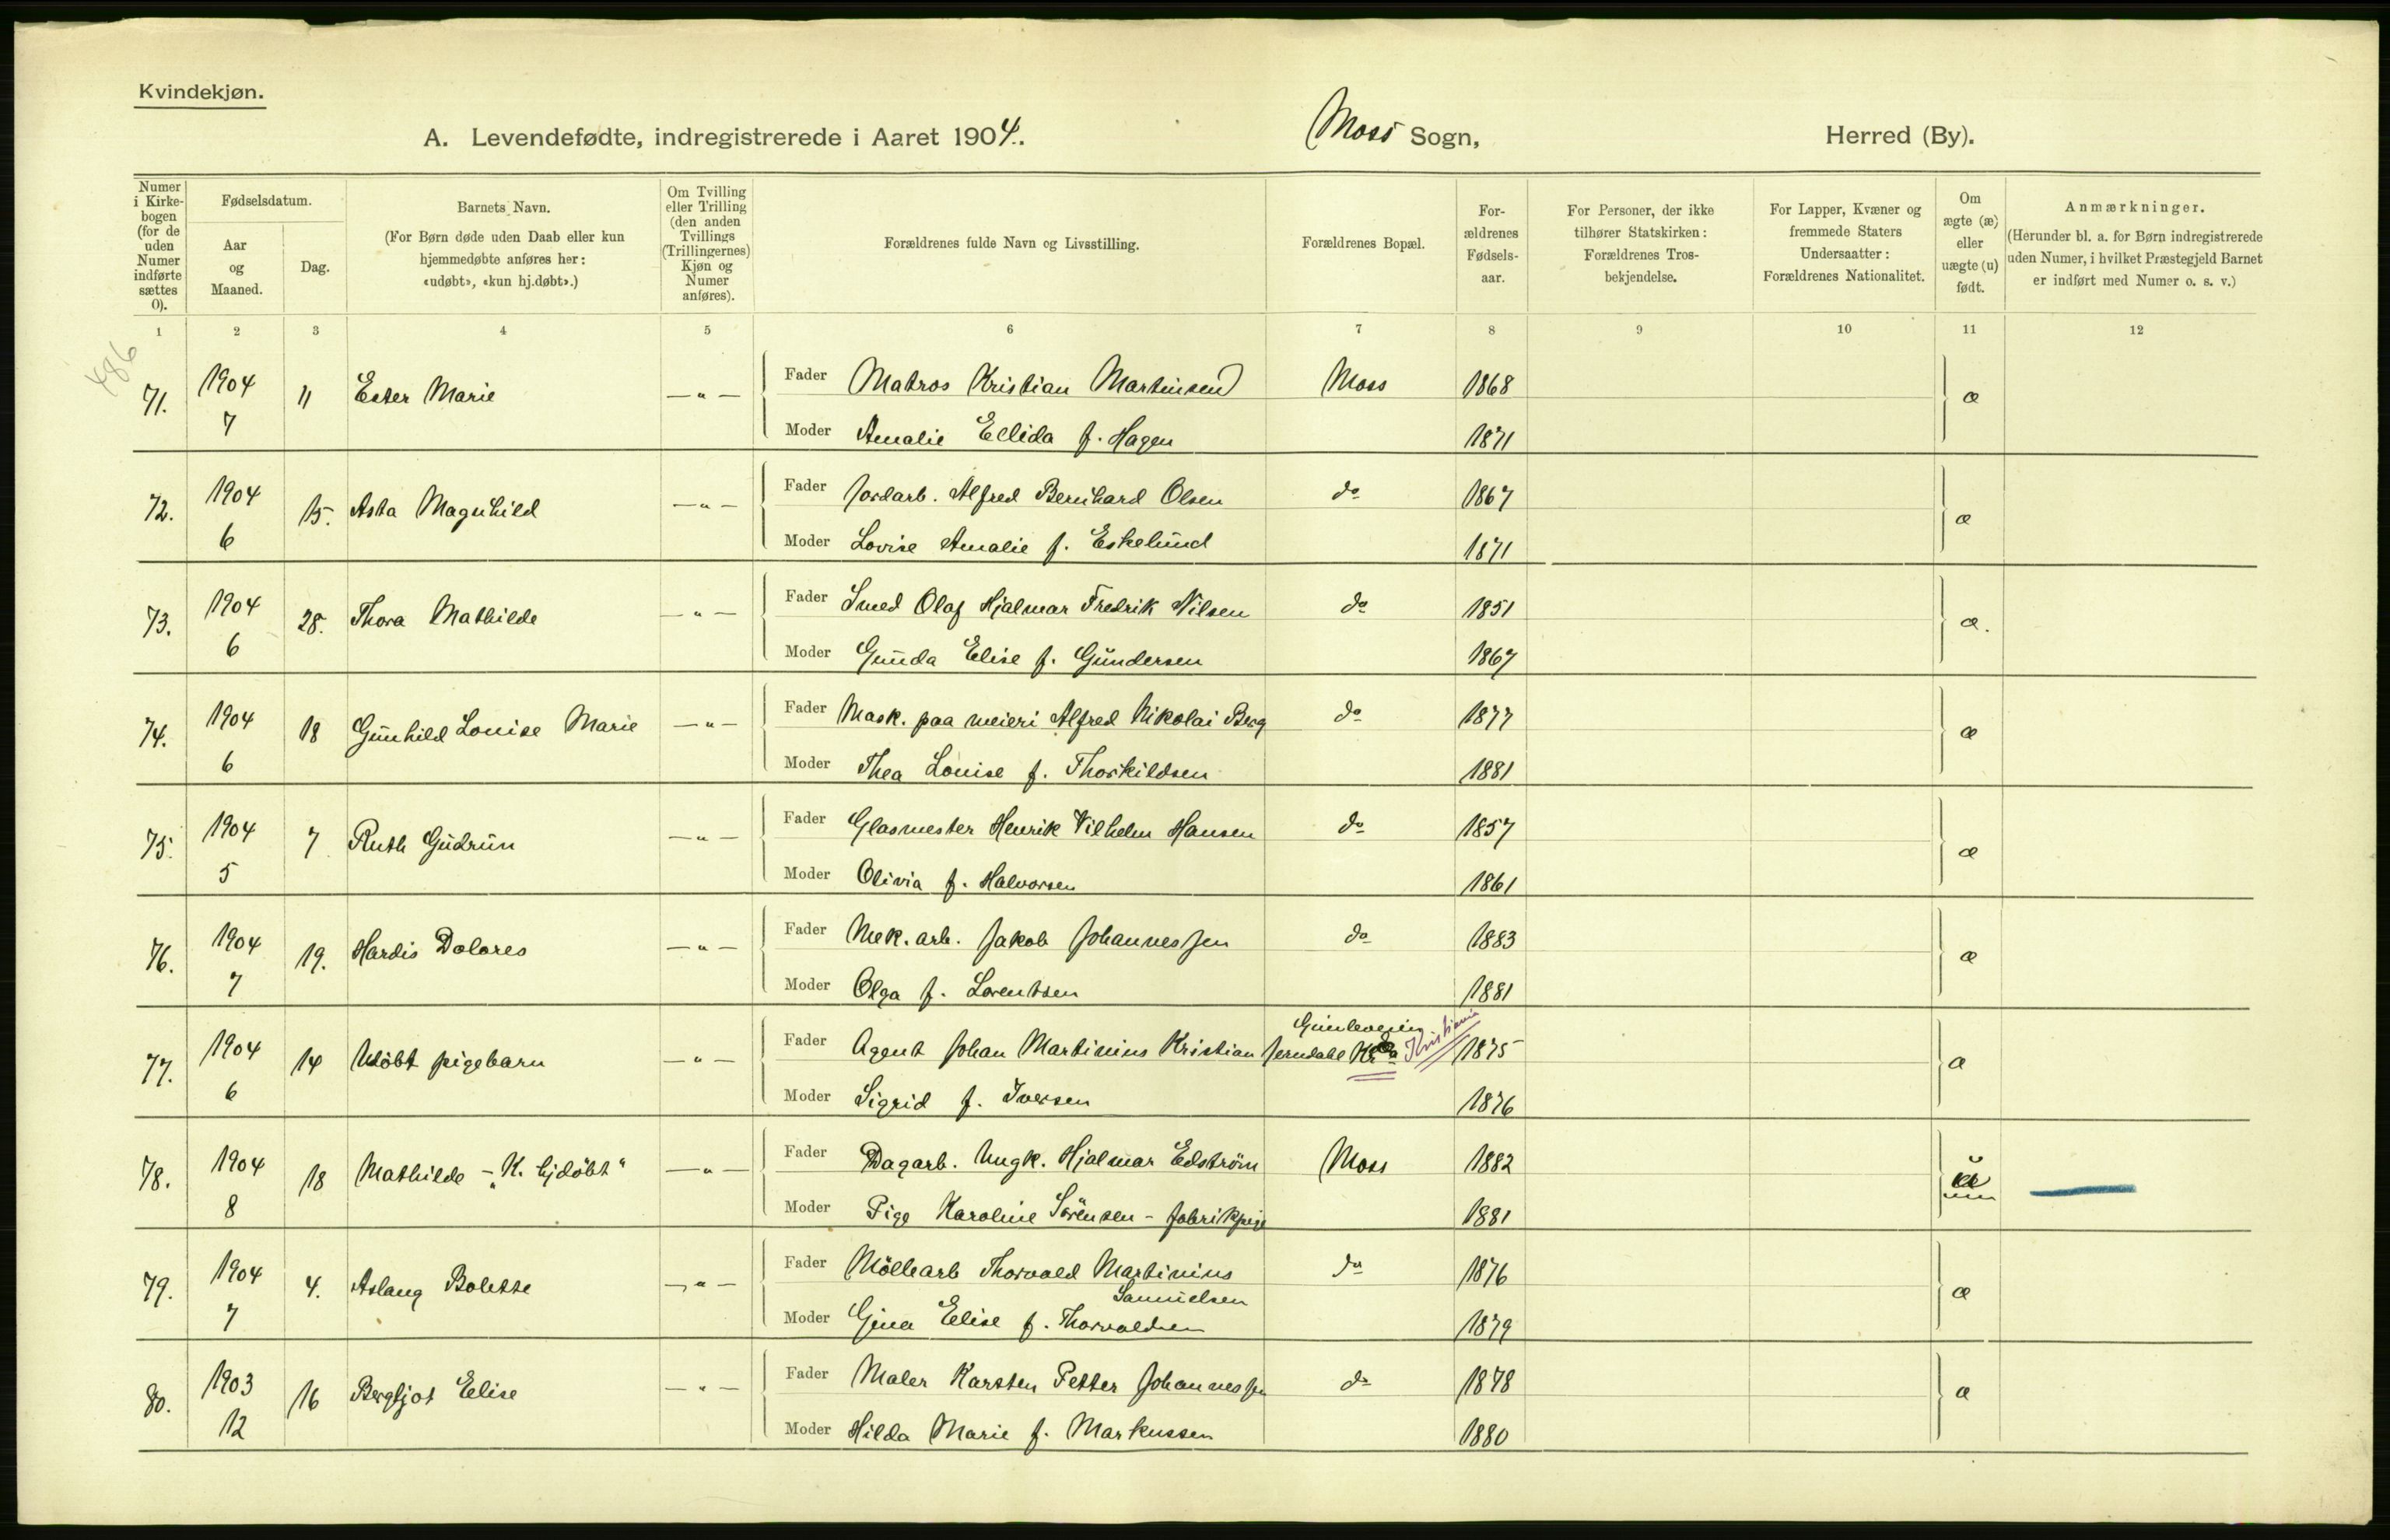 Kvindekjøn.
A. Levendefødte, indregistrerede i Aaret 1904. Moss Sogn, Herred (By).
Numer i Kirkebogen (for de uden Numer indførte sættes 0).
Fødselsdatum.
Aar og Maaned.
Dag.
Barnets Navn.
(For Børn døde uden Daab eller kun hjemmedøbte anføres her: «udøbt», «kun hj.døbt».)
Om Tvilling eller Trilling (den anden Tvillings (Trillingernes) Kjøn og Numer anføres).
Forældrenes fulde Navn og Livsstilling.
Forældrenes Bopæl.
For-ældrenes Fødsels-aar.
For Personer, der ikke tilhører Statskirken: Forældrenes Tros-bekjendelse.
For Lapper, Kvæner og fremmede Staters Undersaatter: Forældrenes Nationalitet.
Om ægte (æ) eller uægte (u) født.
Anmærkninger.
(Herunder bl. a. for Børn indregistrerede uden Numer, i hvilket Præstegjeld Barnet er indført med Numer o. s. v.)
1 2 3 4 5 6 7 8 9 10 11 12
486
71. 1904 7 11 Ester Marie — " — Fader Matros Kristian Martinsen Moss 1868 æ
Moder Amalie Ellida f. Hagen 1871
72. 1904 6 15. Asta Magnhild — " — Fader Jordarb. Alfred Bernhard Olsen do 1867 æ
Moder Lovise Amalie f. Eskelund 1871
73. 1904 6 28. Thora Mathilde — " — Fader Smed Olaf Hjalmar Fredrik Nilsen do 1851 æ.
Moder Gunda Elise f. Gundersen 1867
74. 1904 6 18 Gunhild Louise Marie — " — Fader Mask. paa meieri Alfred Nikolai Berg do 1877 æ
Moder Thea Louise f. Thorkildsen 1881
75. 1904 5 7 Ruth Gudrun — " — Fader Glasmester Henrik Vilhelm Hansen do 1857 æ
Moder Olivia f. Halvorsen 1861
76. 1904 7 19. Hardis Dolores — " — Fader Mek. arb. Jakob Johannessen do 1883 æ
Moder Olga f. Lorentsen 1881
77. 1904 6 14 Udöbt pigebarn — " — Fader Agent Johan Martinius Kristian Jerndahl Kra Kristiania 1875 æ
Moder Sigrid f. Iversen 1876
78. 1904 8 18 Mathilde - "K. hjdöbt" — " — Fader Dagarb. Ungk. Hjalmar Edström Moss 1882 u
Moder Pige Karoline Sörensen - fabrikpige 1881
79. 1904 7 4. Aslaug Bolette — " — Fader Möllearb Thorvald Martinius Samuelsen do 1876 æ
Moder Gina Elise f. Thorvaldsen 1879
80. 1903 12 16 Bergljot Elise — " — Fader Maler Karsten Petter Johannessen do 1878 æ
Moder Hilda Marie f. Markussen 1880